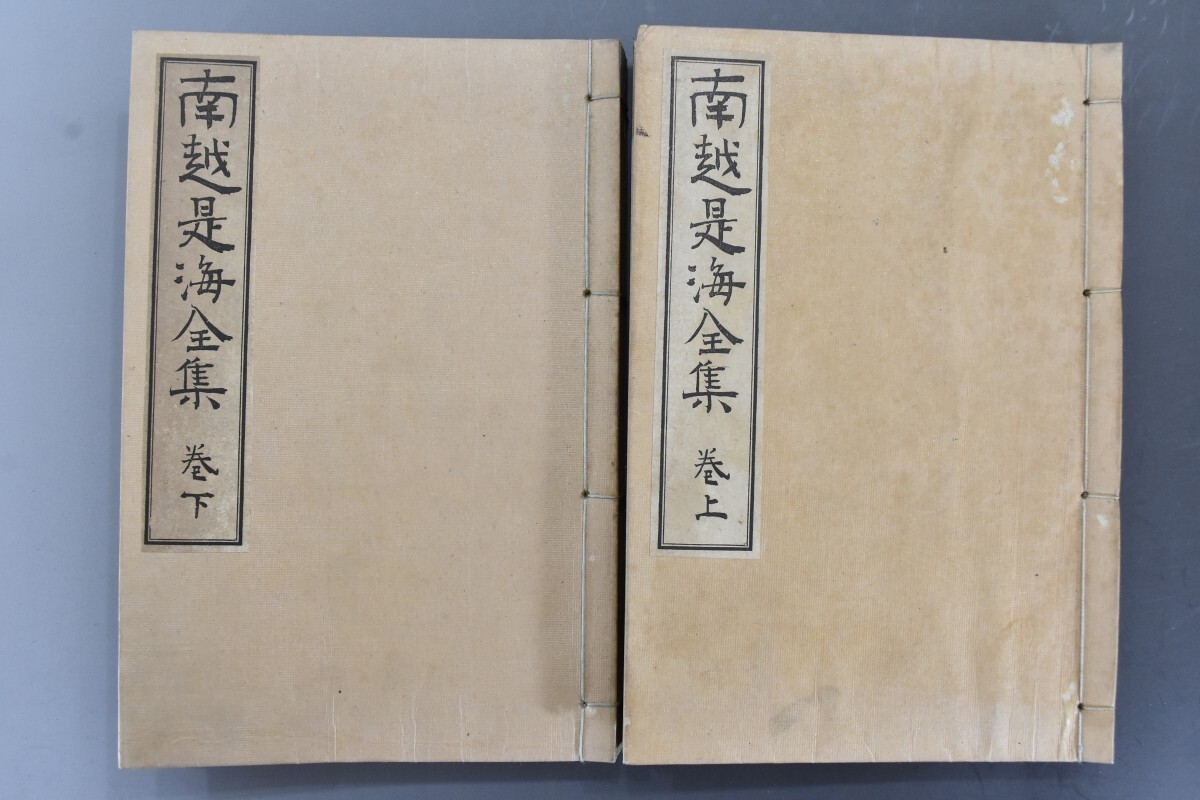 南越是海全集 巻上
南越是海全集 巻下